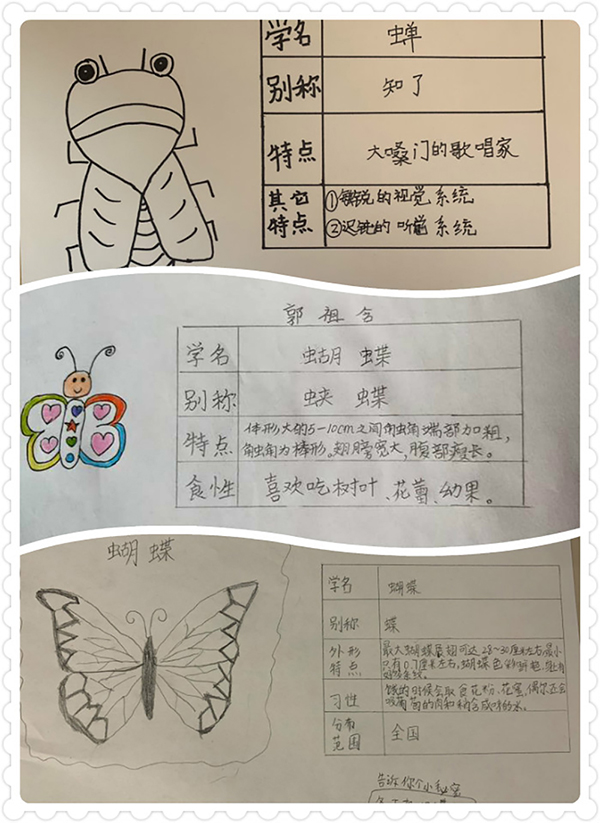 学名 蝉
别称 知了
特点 大嗓门的歌唱家
其它特点 ①敏锐的视觉系统
②迟钝的听觉系统
郭祖含
学名 蝴蝶
别称 蛱蝶
特点 体形大约5-10cm之间角虫角端部加粗,
角虫角为棒形。翅膀宽大,腹部瘦长。
食性 喜欢吃树叶、花蕾、幼果。
蝴蝶
学名 蝴蝶
别称 蝶
外形特点 最大蝴蝶展翅可达28~30厘米左右,最小
只有0.7厘米左右,蝴蝶色彩鲜艳,
习性 饿的时候会取食花粉、花蜜,偶尔还会
分布范围 全国
告诉你个小秘密